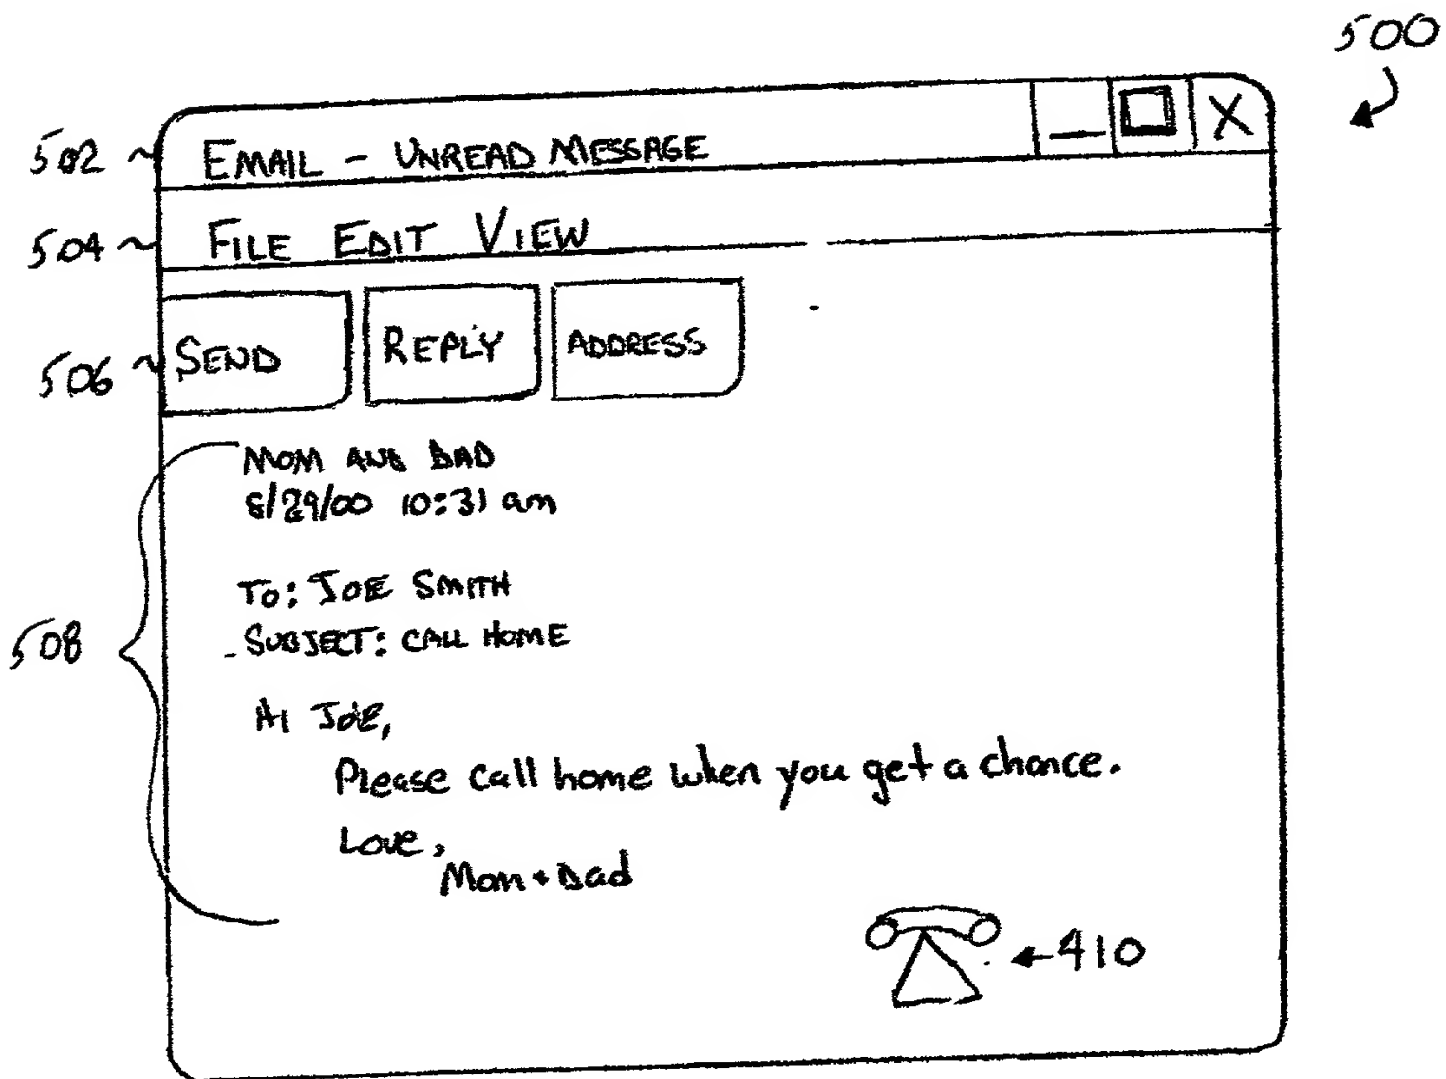 500
502 EMAIL - UNREAD MESSAGE X
504 FILE EDIT VIEW
506 SEND REPLY ADDRESS
MOM AND DAD
8/29/00 10:31 am
TO: JOE SMITH
SUBJECT: CALL HOME
508
HI JOE,
Please call home when you get a chance.
Love,
Mom + Dad
410